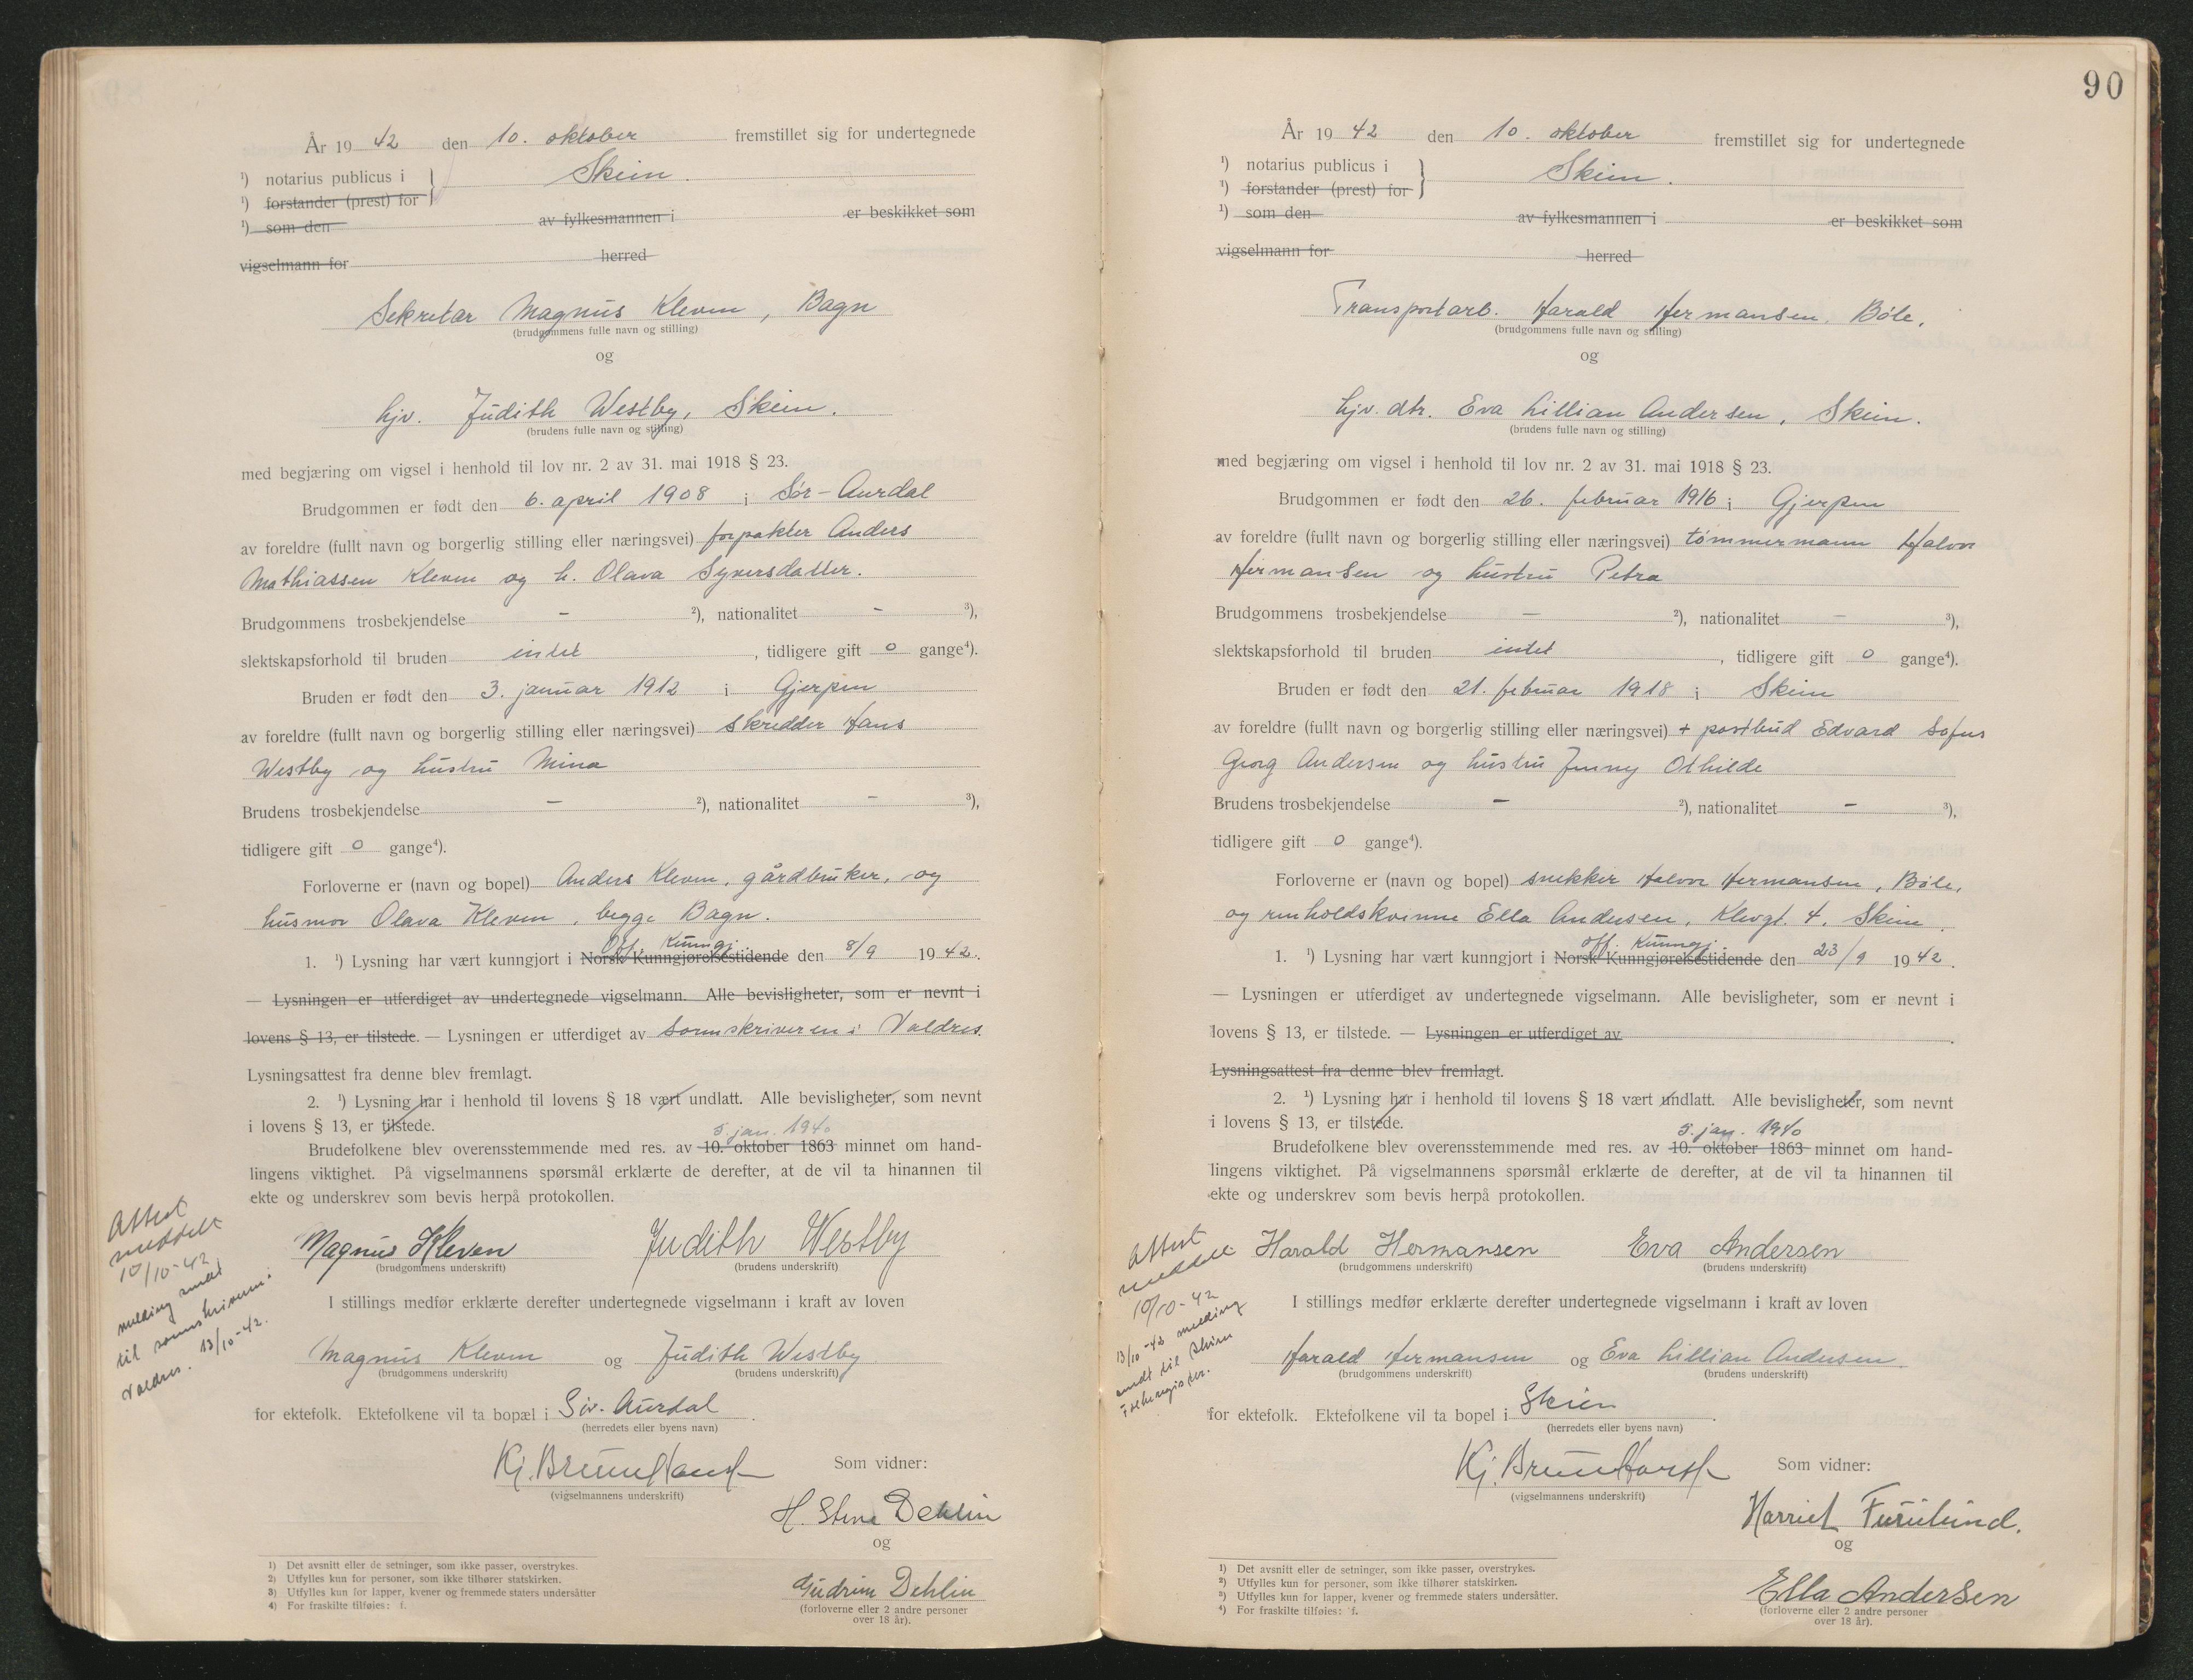 År 1942 den 10. oktober fremstillet sig for undertegnede
¹) notarius publicus i } Skien.
¹) forstander (prest) for
¹) som den av fylkesmannen i er beskikket som
vigselmann for herred
Sekretær Magnus Kleven, Bagn
(brudgommens fulle navn og stilling)
og
hjv. Judith Westby, Skien.
(brudens fulle navn og stilling)
med begjæring om vigsel i henhold til lov nr. 2 av 31. mai 1918 § 23.
Brudgommen er født den 6. april 1908 i Sør-Aurdal
av foreldre (fullt navn og borgerlig stilling eller næringsvei) forpakter Anders
Mathiassen Kleven og h. Olava Syversdatter.
Brudgommens trosbekjendelse - ²), nationalitet - ³),
slektskapsforhold til bruden intet, tidligere gift 0 gange⁴).
Bruden er født den 3. januar 1912 i Gjerpen
av foreldre (fullt navn og borgerlig stilling eller næringsvei) skredder Hans
Westby og hustru Mina
Brudens trosbekjendelse - ²), nationalitet - ³),
tidligere gift 0 gange⁴).
Forloverne er (navn og bopel) Anders Kleven, gårdbruker, og
husmor Olava Kleven, begge Bagn.
Off. Kunngj.
1. ¹) Lysning har vært kunngjort i Norsk Kunngjørelsestidende den 8/9 1942.
— Lysningen er utferdiget av undertegnede vigselmann. Alle bevisligheter, som er nevnt i
lovens § 13, er tilstede. — Lysningen er utferdiget av sorenskriveren i Valdres.
Lysningsattest fra denne blev fremlagt.
2. ¹) Lysning har i henhold til lovens § 18 vært undlatt. Alle bevisligheter, som nevnt
i lovens § 13, er tilstede.
5. jan. 1940
Brudefolkene blev overensstemmende med res. av 10. oktober 1863 minnet om hand-
lingens viktighet. På vigselmannens spørsmål erklærte de derefter, at de vil ta hinannen til
ekte og underskrev som bevis herpå protokollen.
Attest
meddelt
10/10-42
melding sendt
til sorenskriveren i
Valdres. 13/10-42.
Magnus Kleven Judith Westby
(brudgommens underskrift) (brudens underskrift)
I stillings medfør erklærte derefter undertegnede vigselmann i kraft av loven
Magnus Kleven og Judith Westby
(brudgommens underskrift) (brudens underskrift)
for ektefolk. Ektefolkene vil ta bopæl i Sør-Aurdal.
(herredets eller byens navn)
Kj. Brunhorst Som vidner:
(vigselmannens underskrift)
H. Dehlin
og
Gudrun Dehlin
(forloverne eller 2 andre personer
over 18 år).
1) Det avsnitt eller de setninger, som ikke passer, overstrykes.
2) Utfylles kun for personer, som ikke tilhører statskirken.
3) Utfylles kun for lapper, kvener og fremmede staters undersåtter
4) For fraskilte tilføies: f.
90
År 1942 den 10. oktober fremstillet sig for undertegnede
¹) notarius publicus i } Skien.
¹) forstander (prest) for
¹) som den av fylkesmannen i er beskikket som
vigselmann for herred
Transportarb. Harald Hermansen, Bøle,
(brudgommens fulle navn og stilling)
og
hjv. dtr. Eva Lillian Andersen, Skien.
(brudens fulle navn og stilling)
med begjæring om vigsel i henhold til lov nr. 2 av 31. mai 1918 § 23.
Brudgommen er født den 26. februar 1916 i Gjerpen
av foreldre (fullt navn og borgerlig stilling eller næringsvei) tømmermann Halvor
Hermansen og hustru Petra
Brudgommens trosbekjendelse — ²), nationalitet — ³),
slektskapsforhold til bruden intet, tidligere gift 0 gange⁴).
Bruden er født den 21. februar 1918 i Skien
av foreldre (fullt navn og borgerlig stilling eller næringsvei) + postbud Edvard Sofus
Georg Andersen og hustru Jenny Othilde
Brudens trosbekjendelse - ²), nationalitet - ³),
tidligere gift 0 gange⁴).
Forloverne er (navn og bopel) snekker Halvor Hermansen, Bøle,
og renholdskvinne Ella Andersen, Klevgt. 4, Skien.
off. Kunngj.
1. ¹) Lysning har vært kunngjort i Norsk Kunngjørelsestidende den 23/9 1942.
— Lysningen er utferdiget av undertegnede vigselmann. Alle bevisligheter, som er nevnt i
lovens § 13, er tilstede. — Lysningen er utferdiget av.
Lysningsattest fra denne blev fremlagt.
2. ¹) Lysning har i henhold til lovens § 18 vært undlatt. Alle bevisligheter, som nevnt
i lovens § 13, er tilstede.
5. jan. 1940
Brudefolkene blev overensstemmende med res. av 10. oktober 1863 minnet om hand-
lingens viktighet. På vigselmannens spørsmål erklærte de derefter, at de vil ta hinannen til
ekte og underskrev som bevis herpå protokollen.
Attest
meddelt
10/10-42
13/10-42 melding
sendt til Skien
Folkeregister.
Harald Hermansen Eva Andersen
(brudgommens underskrift) (brudens underskrift)
I stillings medfør erklærte derefter undertegnede vigselmann i kraft av loven
Harald Hermansen og Eva Lillian Andersen
(brudgommens underskrift) (brudens underskrift)
for ektefolk. Ektefolkene vil ta bopel i Skien.
(herredets eller byens navn)
Kj. Brunhorst Som vidner:
(vigselmannens underskrift)
Harriet Furulund.
og
Ella Andersen
(forloverne eller 2 andre personer
over 18 år).
¹) Det avsnitt eller de setninger, som ikke passer, overstrykes.
²) Utfylles kun for personer, som ikke tilhører statskirken.
³) Utfylles kun for lapper, kvener og fremmede staters undersåtter.
⁴) For fraskilte tilføies: f.